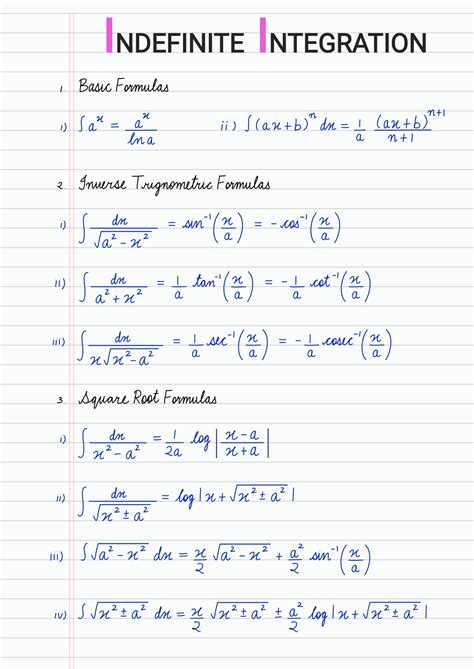 INDEFINITE INTEGRATION
1. Basic Formulas
i) ∫a^x = a^x / ln a ii) ∫(ax+b)^n dx = 1/a (ax+b)^(n+1) / (n+1)
2. Inverse Trignometric Formulas
i) ∫ dx / √(a² - x²) = sin⁻¹(x/a) = - cos⁻¹(x/a)
ii) ∫ dx / (a² + x²) = 1/a tan⁻¹(x/a) = - 1/a cot⁻¹(x/a)
iii) ∫ dx / (x√(x² - a²)) = 1/a sec⁻¹(x/a) = - 1/a cosec⁻¹(x/a)
3. Square Root Formulas
i) ∫ dx / (x² - a²) = 1/2a log |(x - a)/(x + a)|
ii) ∫ dx / √(x² ± a²) = log |x + √(x² ± a²)|
iii) ∫√(a² - x²) dx = x/2 √(a² - x²) + a²/2 sin⁻¹(x/a)
iv) ∫√(x² ± a²) dx = x/2 √(x² ± a²) ± a²/2 log |x + √(x² ± a²)|